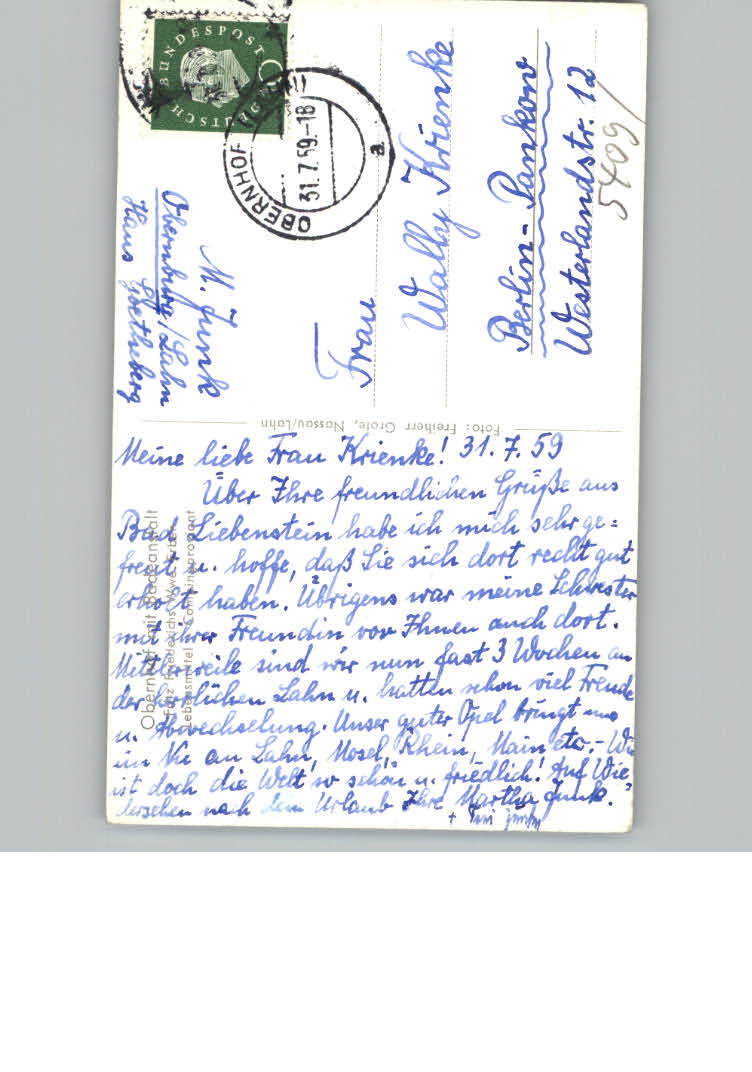 DEUTSCHE BUNDESPOST
OBERNHOF
31.7.59.-18
a
M. Junk
Obernburg/Lahn
Haus Goetheberg
Frau
Wally Krienke
Berlin-Pankow
Westerlandstr. 12
5409
Foto: Freiherr Grote, Nassau/Lahn
Obernhof mit Badeanstalt
Lebensmittel - Campingproviant
Meine liebe Frau Krienke! 31.7.59
Über Ihre freundlichen Grüße aus
Bad Liebenstein habe ich mich sehr ge=
freut u. hoffe, daß Sie sich dort recht gut
erholt haben. Übrigens war meine Schwester
mit ihrer Freundin vor Ihnen auch dort.
Mittlerweile sind wir nun fast 3 Wochen an
der herrlichen Lahn u. hatten schon viel Freude
u. Abwechselung. Unser guter Opel bringt uns
im Nu an Lahn, Mosel, Rhein, Main etc. - Wie
ist doch die Welt so schön u. friedlich! Auf Wie=
dersehen nach dem Urlaub Ihre Martha Junk.
+